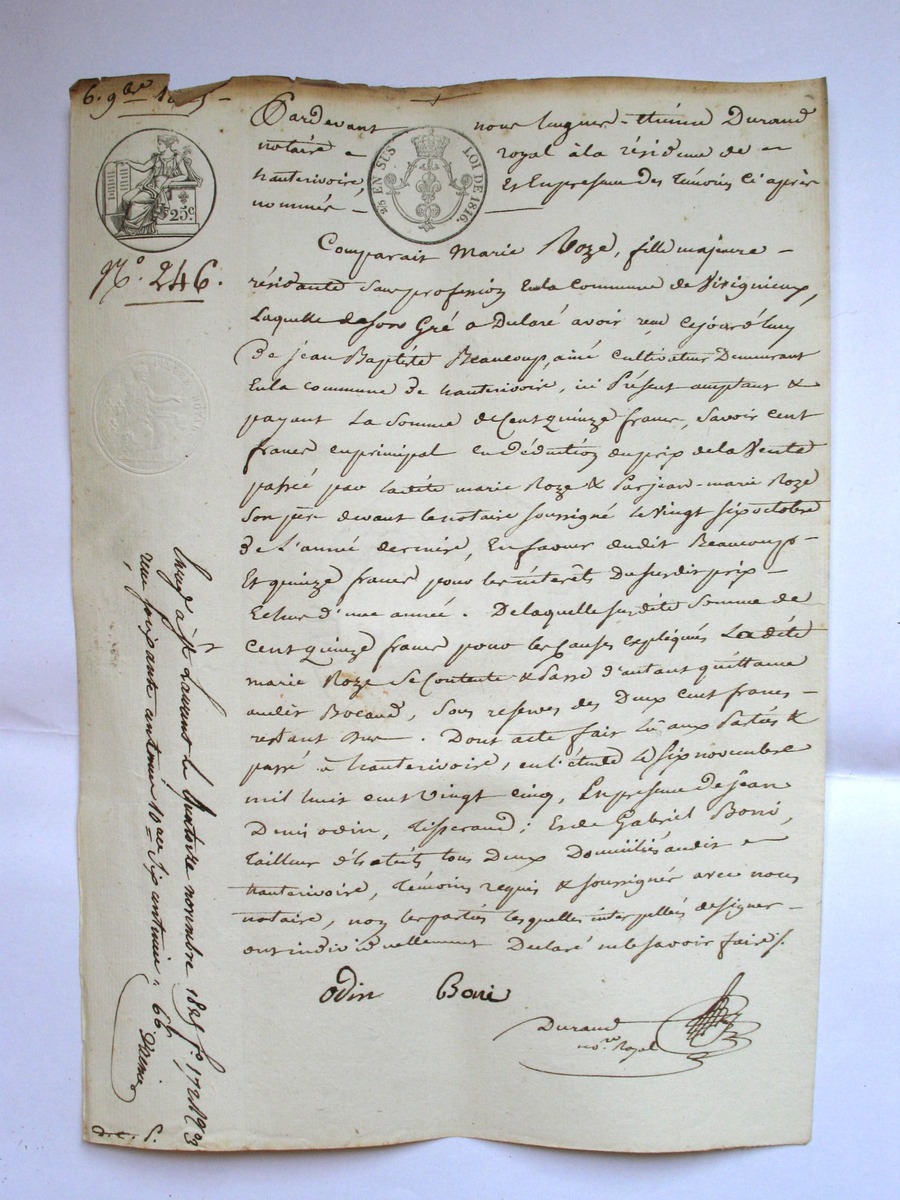 6. 9bre
Pardevant nous hugues-étienne Durand
notaire royal à la résidence de
hauterivoire, Et En présence des témoins ci après
nommés
25 c.
2/5 EN SUS LOI DE 1816.
N.º 246.
Comparait Marie Roze, fille majeure
résidante sans profession En la Commune de
Laquelle de son Gré a Déclaré avoir reçu cejourd'huy
De jean Baptiste Beaucoup, ainé cultivateur Demeurant
En la commune de hauterivoire, ici Présent acceptant &
payant La Somme de Cent quinze francs, Savoir cent
francs en principal en Déduction du prix de la Vente
passée par ladite marie Roze & Par jean-marie Roze
Son devant le notaire soussigné le Vingt six octobre
de L'année dernière, En faveur dudit Beaucoup
Et quinze francs pour les intérêts Du susdit prix
Echus d'une année. De laquelle susdite Somme de
Cent quinze francs pour les Causes expliqués Ladite
marie Roze Se Contente & Passe d'autant quittance
audit Bocaud, Sous reserves des Deux Cent francs
restant Dus. Dont acte fait Lû aux Parties &
passé à hauterivoire, en L'étude Le Six novembre
mil huit cent Vingt cinq, En présence de jean
Denis odin, Tisserand; Et de Gabriel Boni,
Tailleur d'habits tous Deux Domiciliés audit
hauterivoire, Témoins requis & soussignés avec nous
notaire, non les parties lesquelles interpellés de signer
ont individuellement Déclaré ne le savoir faire ./.
odin Boni
Durand
no.re Royal
St Laurent le quatorze novembre 1825 fo. 17
reçu soixante centimes 10.me Six centimes 66
D.C. S.